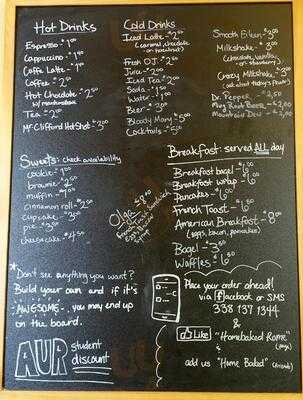 Hot Drinks
Espresso - 1.00
Cappuccino - 1
Caffe Latte - 1
Coffee - 2
Hot Chocolate - 2.50
w/ marshmallows
Tea - 2.00
Mr Clifford Hot Shot - 3.00
Cold Drinks
Iced Latte - 2.50
(caramel, chocolate
or hazelnut)
Fresh O.J. - 2
Juice - 2.00
Iced Tea - 2.00
Soda -
Water -
Beer - 3.00
Bloody Mary - 5
Cocktails - 5
Smooth Eileen - 3.00
Milkshake - 3.00
(chocolate, vanilla,
or strawberry)
Crazy Milkshake - 3.50
(ask about today's flavor)
Dr. Pepper - 2.00
Mug Root Beer - 2.00
Mountain Dew - 2.00
Sweets: check availability
cookie - 1.00
brownie - 2
muffin -
cinnamon roll - 2.50
cupcake - 2.00
pie - 3.00
cheesecake - 4.50
Olga - 8.00
French toast sandwich
Breakfast: served ALL day
Breakfast bagel - 6.00
Breakfast wrap - 6.00
Pancakes - 6.00
French Toast - 6.00
American Breakfast - 8.00
(eggs, bacon, pancakes)
Bagel - 3.50
Waffles - 6.50
* Don't see anything you want?
Build your own and if it's
-AWESOME-, you may end up
on the board.
AUR student
discount
Place your order ahead!!
via facebook or SMS
338 137 1344
&
Like "Homebaked Rome"
(page)
&
add us "Home Baked" (friends)